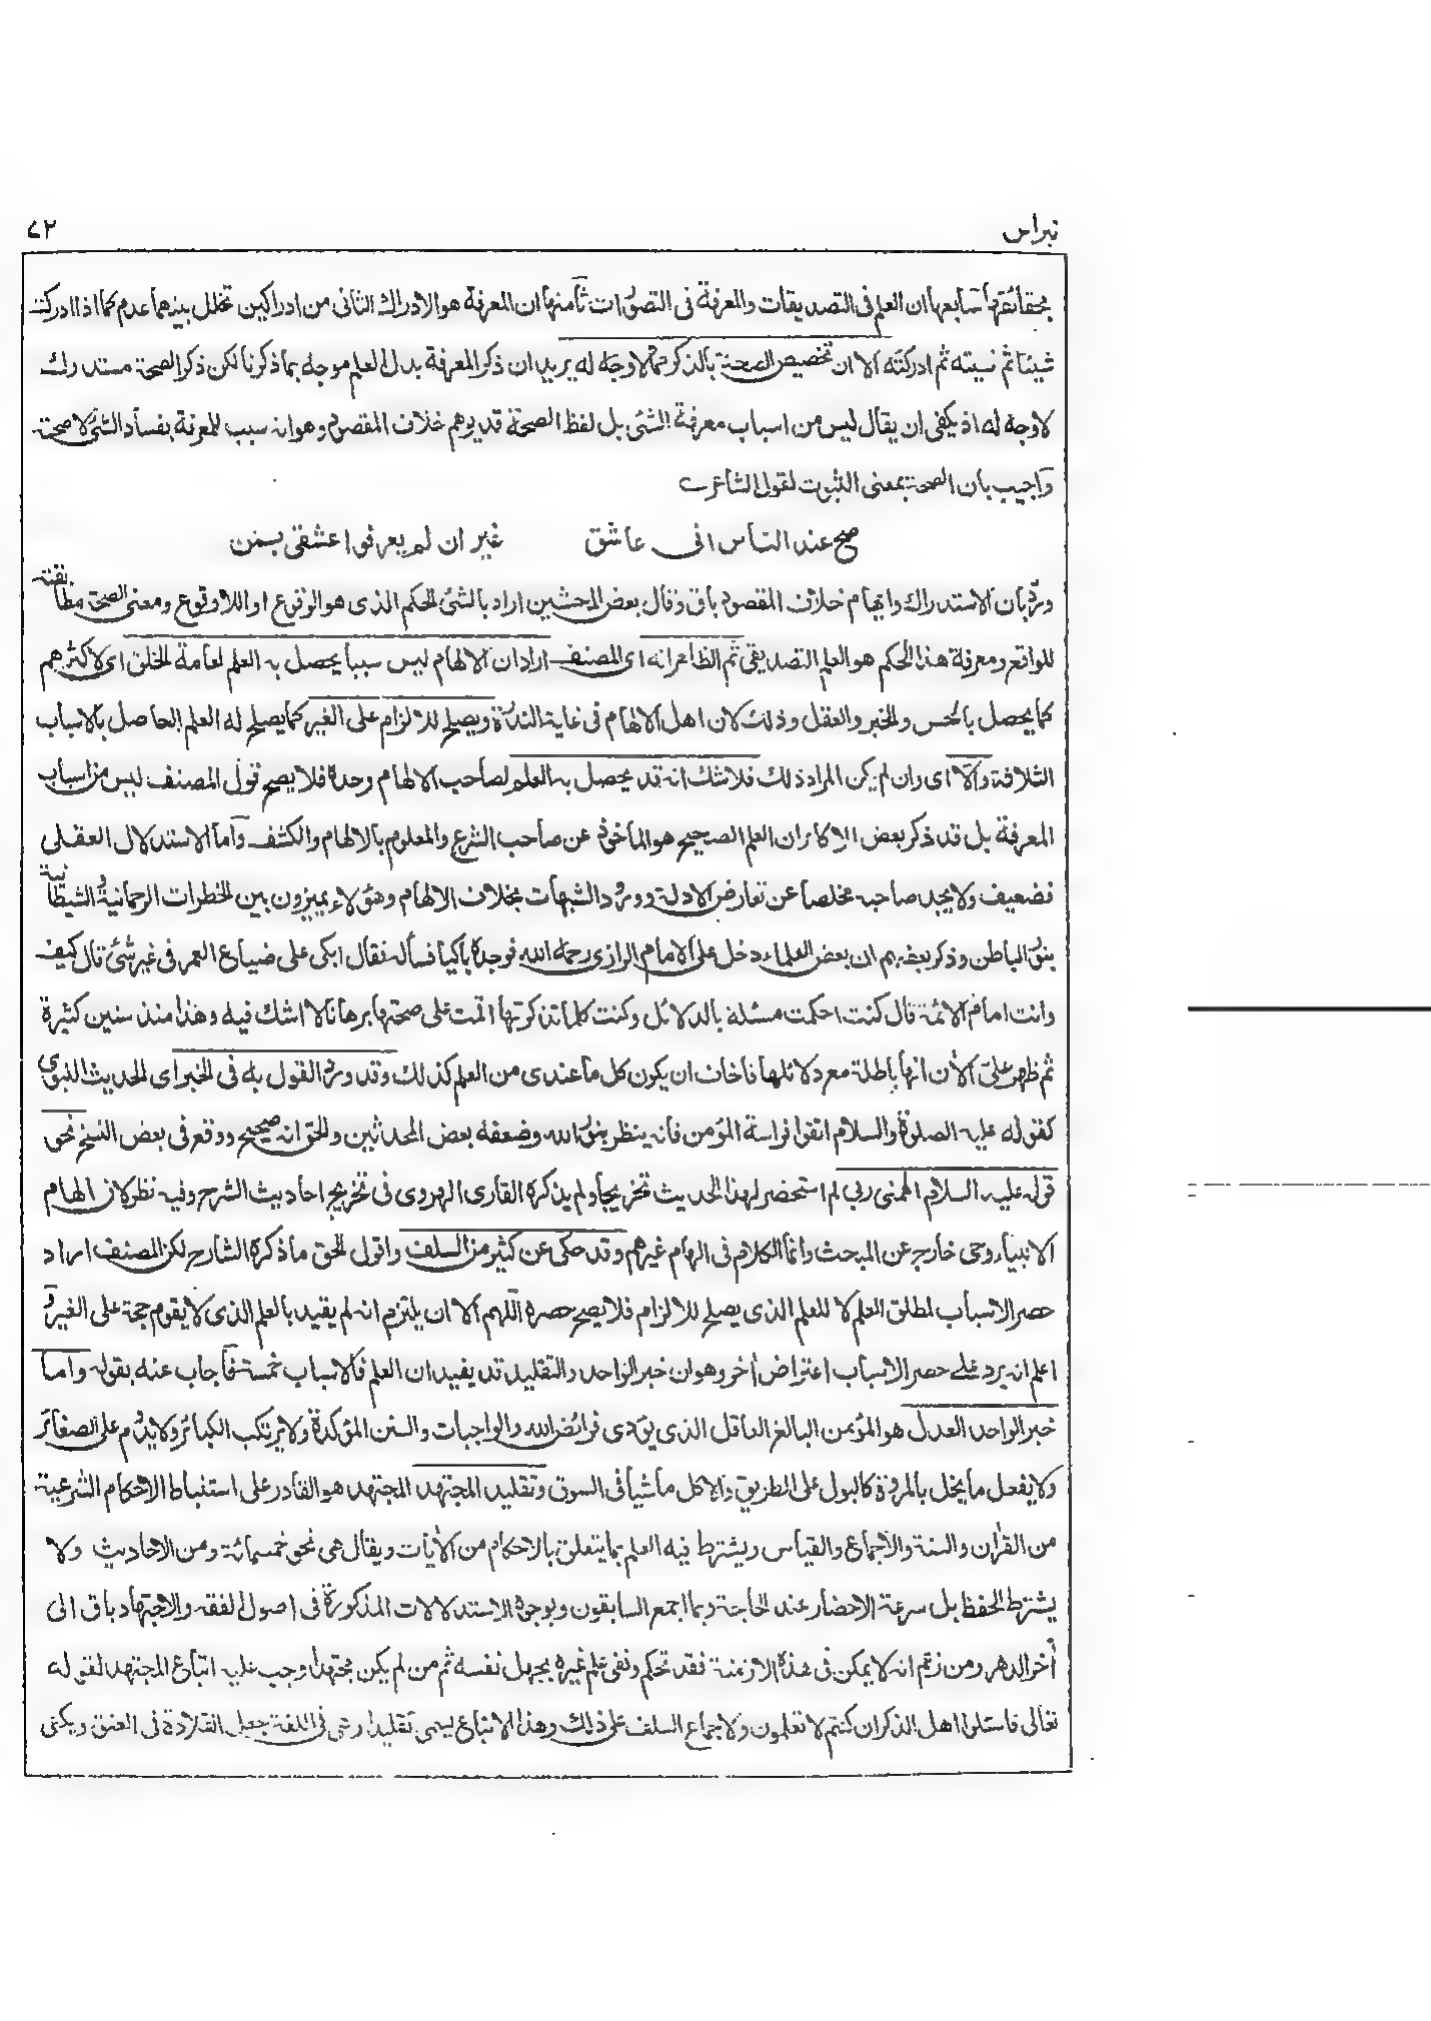 نبراس
٧٢
بحقائقها سابعها ان العلم فى التصديقات والمعرفة فى التصورات ثامنها ان المعرفة هو الادراك الثانى من ادراكين تخلل بينهما عدم كما اذا ادركت
شيئا ثم نسيته ثم ادركته الا ان تخصيص الصحة بالذكر مما لا وجه له يريد ان ذكر المعرفة بدل العلم موجه بما ذكرنا لكن ذكر الصحة مستدرك
لا وجه له اذ يكفى ان يقال ليس من اسباب معرفة الشئ بل لفظ الصحة قد يوهم خلاف المقصود وهو انه سبب للمعرفة بفساد الشئ لا صحته
وآجيب بان الصحة بمعنى الثبوت لقول الشاعر ے
صح عند الناس انى عاشق غير ان لم يعرفوا عشقى بمن
ورد بان الاستدراك وايهام خلاف المقصود باق وقال بعض المحشين اراد بالشئ الحكم الذى هو الوقوع او اللاوقوع ومعنى الصحة مطابقته
للواقع ومعرفة هذا الحكم هو العلم التصديقى ثم الظاهر انه اى المصنف اراد ان الالهام ليس سببا يحصل به العلم لعامة الخلق اى لاكثرهم
كما يحصل بالحس والخبر والعقل وذلك لان اهل الالهام فى غاية الندرة ويصلح للالزام على الغير كما يصلح له العلم الحاصل بالاسباب
الثلاثة والآ اى وان لم يكن المراد ذلك فلا شك انه قد يحصل به العلم لصاحب الالهام وحده فلا يصح قول المصنف ليس من اسباب
المعرفة بل قد ذكر بعض الاكابر ان العلم الصحيح هو الماخوذ عن صاحب الشرع والمعلوم بالالهام والكشف وآما الاستدلال العقلى
فضعيف ولا يجد صاحبه مخلصا عن تعارض الادلة وورود الشبهات بخلاف الالهام وهؤلاء يميزون بين الخطرات الرحمانية والشيطانية
بنور الباطن وذكر بعضهم ان بعض العلماء دخل على الامام الرازى رحمه الله فوجده باكيا فسأله فقال ابكى على ضياع العمر فى غير شئ قال كيف
وانت امام الائمة قال كنت احكمت مسئلة بالدلائل وكنت كلما تذكرتها اقمت على صحتها برهانا لا اشك فيه وهذا منذ سنين كثيرة
ثم ظهر على الآن انها باطلة مع دلائلها فاخاف ان يكون كل ما عندى من العلم كذلك وقد ورد القول به فى الخبر اى الحديث النبوى
كقوله عليه الصلوة والسلام اتقوا فراسة المؤمن فانه ينظر بنور الله وضعفه بعض المحدثين والحق انه صحيح ووقع فى بعض النسخ نحو
قوله عليه السلام الهمنى ربى لم استحضر لهذا الحديث تخريجا ولم يذكره القارى الهروى فى تخريج احاديث الشرح وفيه نظر لان الهام
الانبياء وحى خارج عن المبحث وانما الكلام فى الهام غيرهم وقد حكى عن كثير من السلف واقول الحق ما ذكره الشارح لكن المصنف اراد
حصر الاسباب لمطلق العلم لا للعلم الذى يصلح للالزام فلا يصح حصره اللهم الا ان يلتزم انه لم يقيد بالعلم الذى لا يقوم حجة على الغير و
اعلم انه يرد على حصر الاسباب اعتراض آخر وهو ان خبر الواحد والتقليد قد يفيد ان العلم فالاسباب خمسة فآجاب عنه بقوله واما
خبر الواحد العدل هو المؤمن البالغ العاقل الذى يؤدى فرائض الله والواجبات والسنن المؤكدة ولا يرتكب الكبائر ولا يدوم على الصغائر
ولا يفعل ما يخل بالمروة كالبول على الطريق والاكل ماشيا فى السوق وتقليد المجتهد المجتهد هو القادر على استنباط الاحكام الشرعية
من القرآن والسنة والاجماع والقياس ويشترط فيه العلم بما يتعلق بالاحكام من الآيات ويقال هى نحو خمسمائة ومن الاحاديث ولا
يشترط الحفظ بل سرعة الاحضار عند الحاجة وبما اجمع السابقون وبوجوه الاستدلالات المذكورة فى اصول الفقه والاجتهاد باق الى
آخر الدهر ومن زعم انه لا يمكن فى هذه الازمنة فقد تحكم ونفى علم غيره بجهل نفسه ثم من لم يكن مجتهدا وجب عليه اتباع المجتهد لقوله
تعالى فاسئلوا اهل الذكر ان كنتم لا تعلمون ولاجماع السلف على ذلك وهذا الاتباع يسمى تقليدا وهى فى اللغة جعل القلادة فى العنق ويكنى